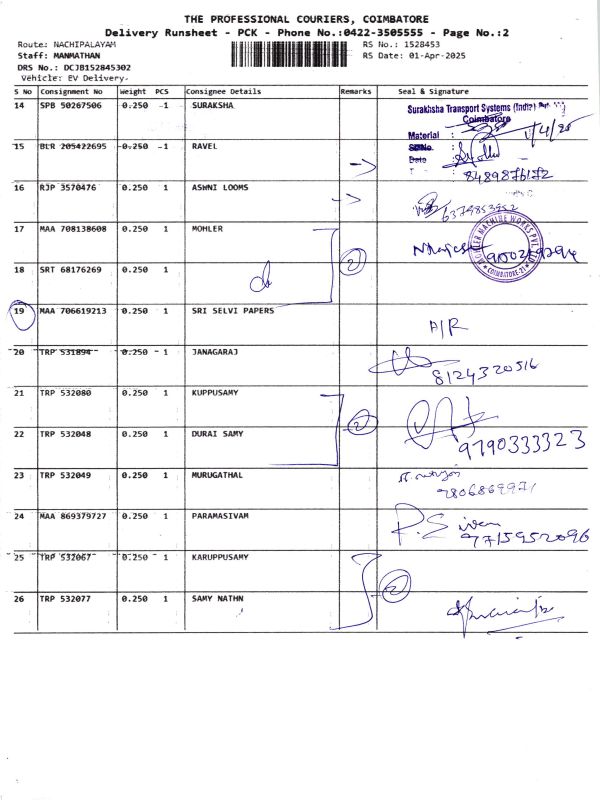 THE PROFESSIONAL COURIERS, COIMBATORE
Delivery Runsheet - PCK - Phone No.:0422-3505555 - Page No.:2
Route: NACHIPALAYAM
RS No.: 1528453
Staff: MANMATHAN
RS Date: 01-Apr-2025
DRS No.: DCJB152845302
Vehicle: EV Delivery-
S No Consignment No Weight PCS Consignee Details Remarks Seal & Signature
14 SPB 50267506 0.250 1 SURAKSHA
Surakhsha Transport Systems (India)
Coimbatore
Material :
1/4/25
Date
15 BLR 205422695 0.250 1 RAVEL
8489876172
16 RJP 3570476 0.250 1 ASWNI LOOMS
6379853952
17 MAA 708138608 0.250 1 MOHLER
2
MACHINE WORKS PVT LTD
COIMBATORE-21
18 SRT 68176269 0.250 1
19 MAA 706619213 0.250 1 SRI SELVI PAPERS
A/R
20 TRP 531894 0.250 1 JANAGARAJ
8124320516
21 TRP 532080 0.250 1 KUPPUSAMY
2
22 TRP 532048 0.250 1 DURAI SAMY
9790333323
23 TRP 532049 0.250 1 MURUGATHAL
9806869971
24 MAA 869379727 0.250 1 PARAMASIVAM
P. Sivam
9715952096
25 TRP 532067 0.250 1 KARUPPUSAMY
2
26 TRP 532077 0.250 1 SAMY NATHN